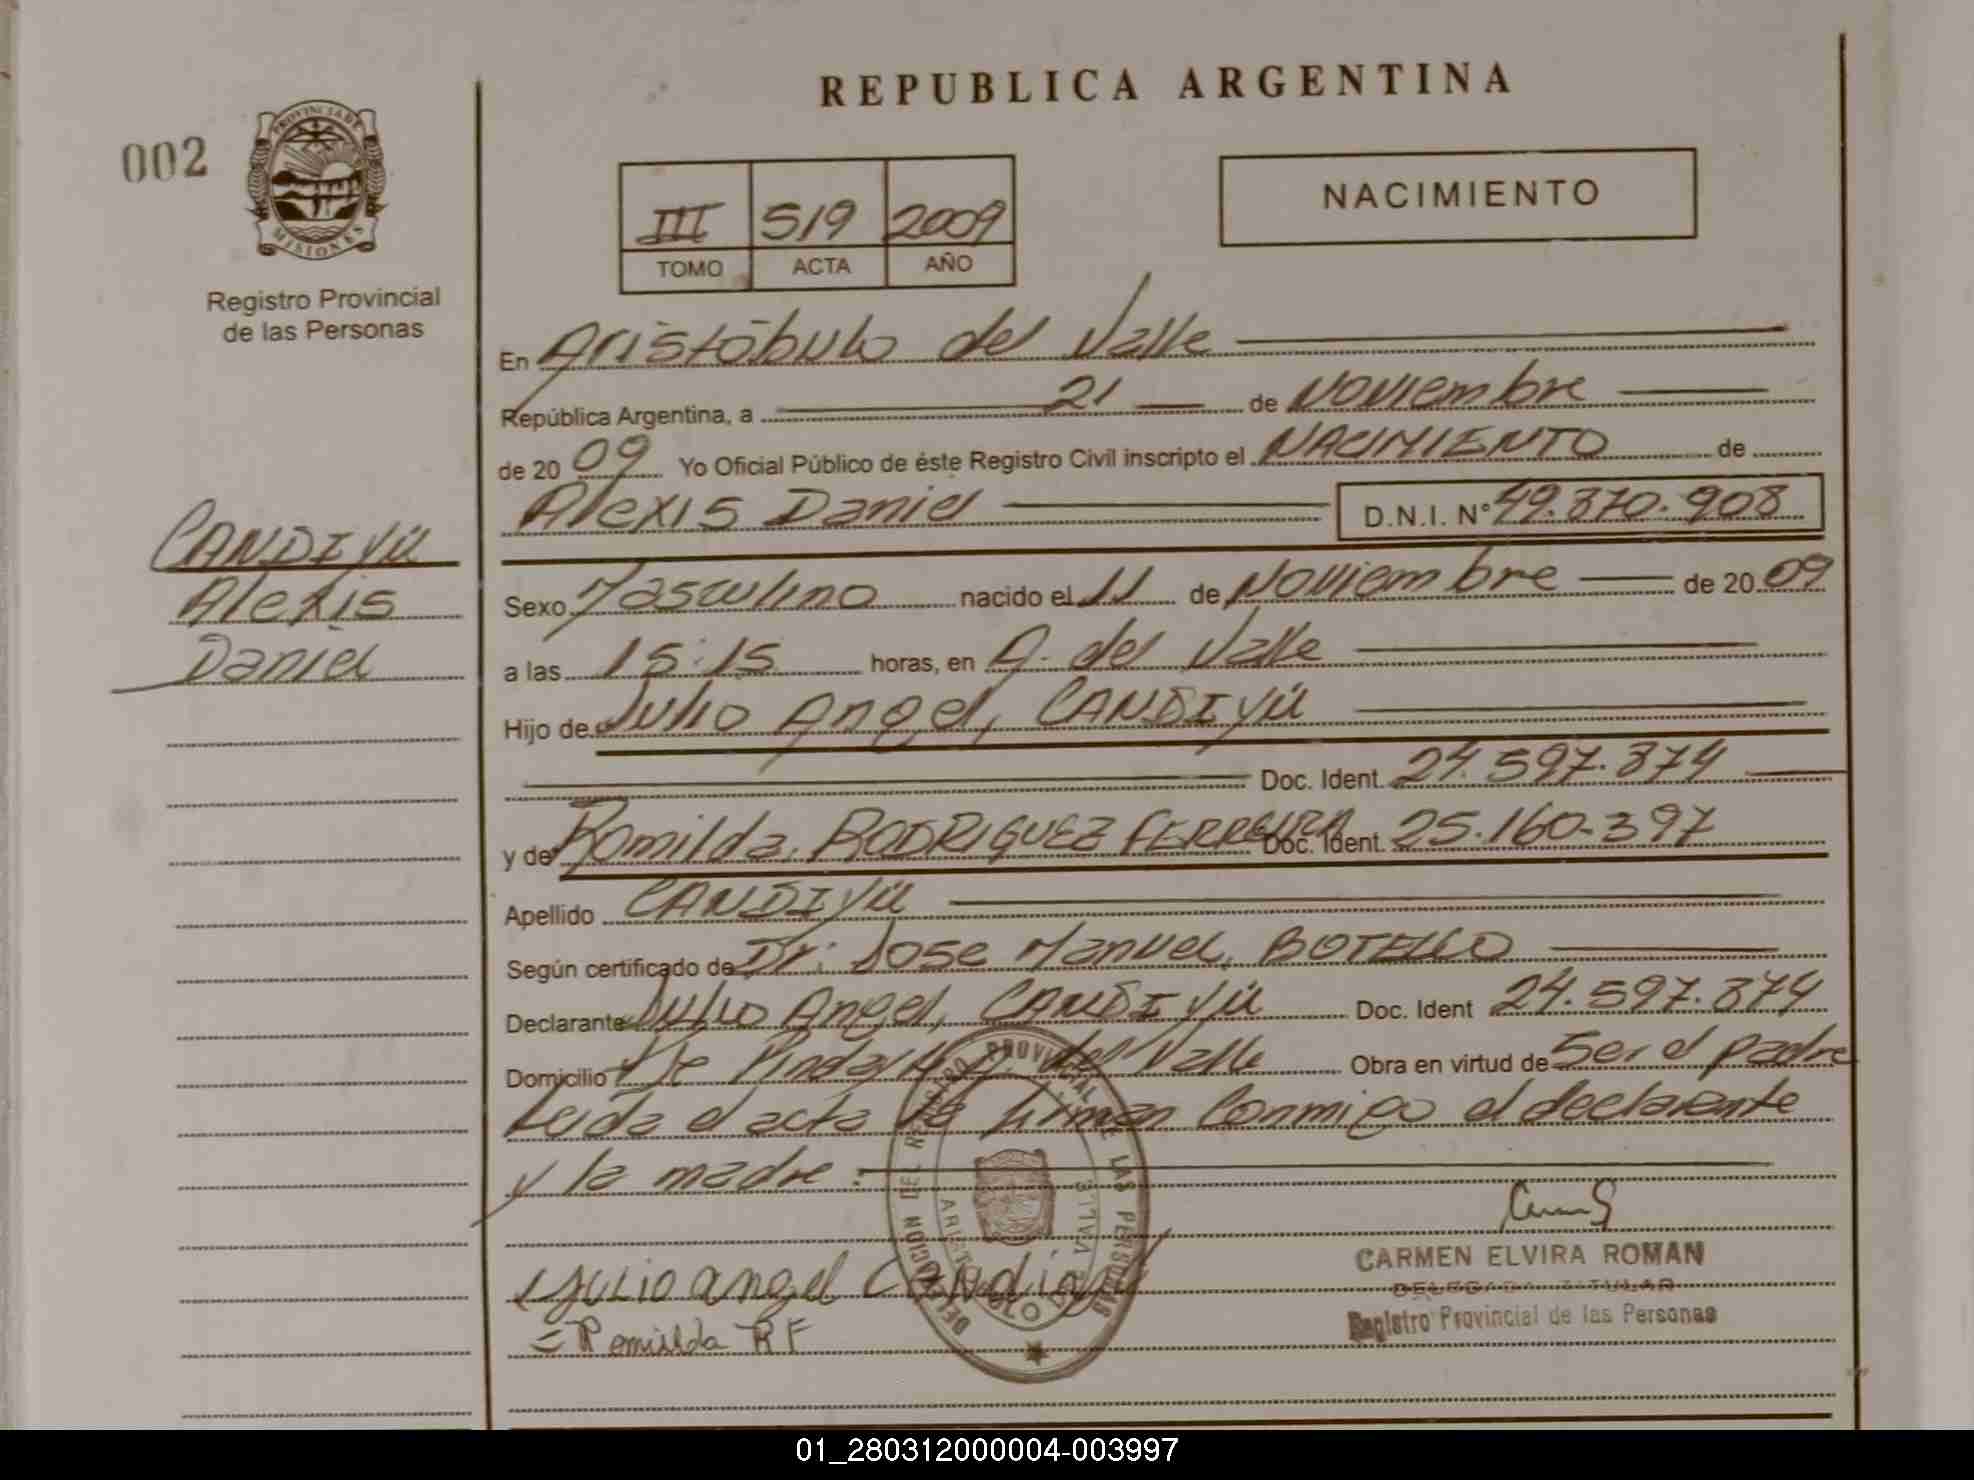 REPUBLICA ARGENTINA
002
PROVINCIA DE
MISIONES
Registro Provincial
de las Personas
III 519 2009
TOMO ACTA AÑO
NACIMIENTO
En Aristóbulo del Valle
República Argentina, a 21 de Noviembre
de 2009 Yo Oficial Público de éste Registro Civil inscripto el NACIMIENTO de
Alexis Daniel D.N.I. N° 49.870.908
CANDIYÚ
Alexis
Daniel
Sexo Masculino nacido el 11 de Noviembre de 2009
a las 15:15 horas, en A. del Valle
Hijo de Julio Angel, CANDIYÚ
Doc. Ident. 24.597.874
y de Romilda, RODRIGUEZ FERREIRA Doc. Ident. 25.160.397
Apellido CANDIYÚ
Según certificado de Dr: Jose Manuel, BOTELLO
Declarante Julio Angel, CANDIYÚ Doc. Ident 24.597.874
Domicilio del Valle Obra en virtud de Ser el padre
Leída el acta la firman Conmigo el declarante
y la madre.
DELEGACION DEL REGISTRO PROVINCIAL DE LAS PERSONAS
ARISTOBULO DEL VALLE
CARMEN ELVIRA ROMAN
DELEGADA TITULAR
Registro Provincial de las Personas
Julio angel Candiyu
Romilda R F
01_280312000004-003997